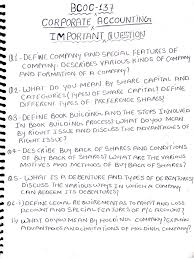 BCOC-137
CORPORATE ACCOUNTING
IMPORTANT QUESTION
Q1- DEFINE COMPANY AND SPECIAL FEATURES OF
COMPANY. DESCRIBES VARIOUS KINDS OF COMPANY
AND FORMATION OF A COMPANY?
Q2- WHAT DO YOU MEAN BY SHARE CAPITAL AND
CATEGORIES OF SHARE CAPITAL? DEFINE
DIFFERENT TYPES OF PREFERENCE SHARES?
Q3- DEFINE BOOK BUILDING AND THE STEPS INVOLVED
IN BOOK BUILDING PROCESS? WHAT DO YOU MEAN
BY RIGHT ISSUE AND DISCUSS THE ADVANTAGES OF
RIGHT ISSUE?
Q4- DESCRIBE BUY BACK OF SHARES AND CONDITIONS
OF BUY BACK OF SHARES? WHAT ARE THE VARIOUS
MOTIVES AND METHODS OF BUY BACK OF SHARES?
Q5- WHAT IS A DEBENTURE AND TYPES OF DEBENTURES
DISCUSS THE VARIOUS WAYS IN WHICH A COMPANY
CAN REDEEM ITS DEBENTURES?
DEFINE LEGAL REQUIREMENTS TO PROFIT AND LOSS
ACCOUNT AND SPECIAL FEATURES OF P/L ACCOUNT?
WHAT DO YOU MEAN BY HOLDING COMPANY? EXPLAIN
ADVANTAGES AND LIMITATIONS OF HOLDING COMPANY?